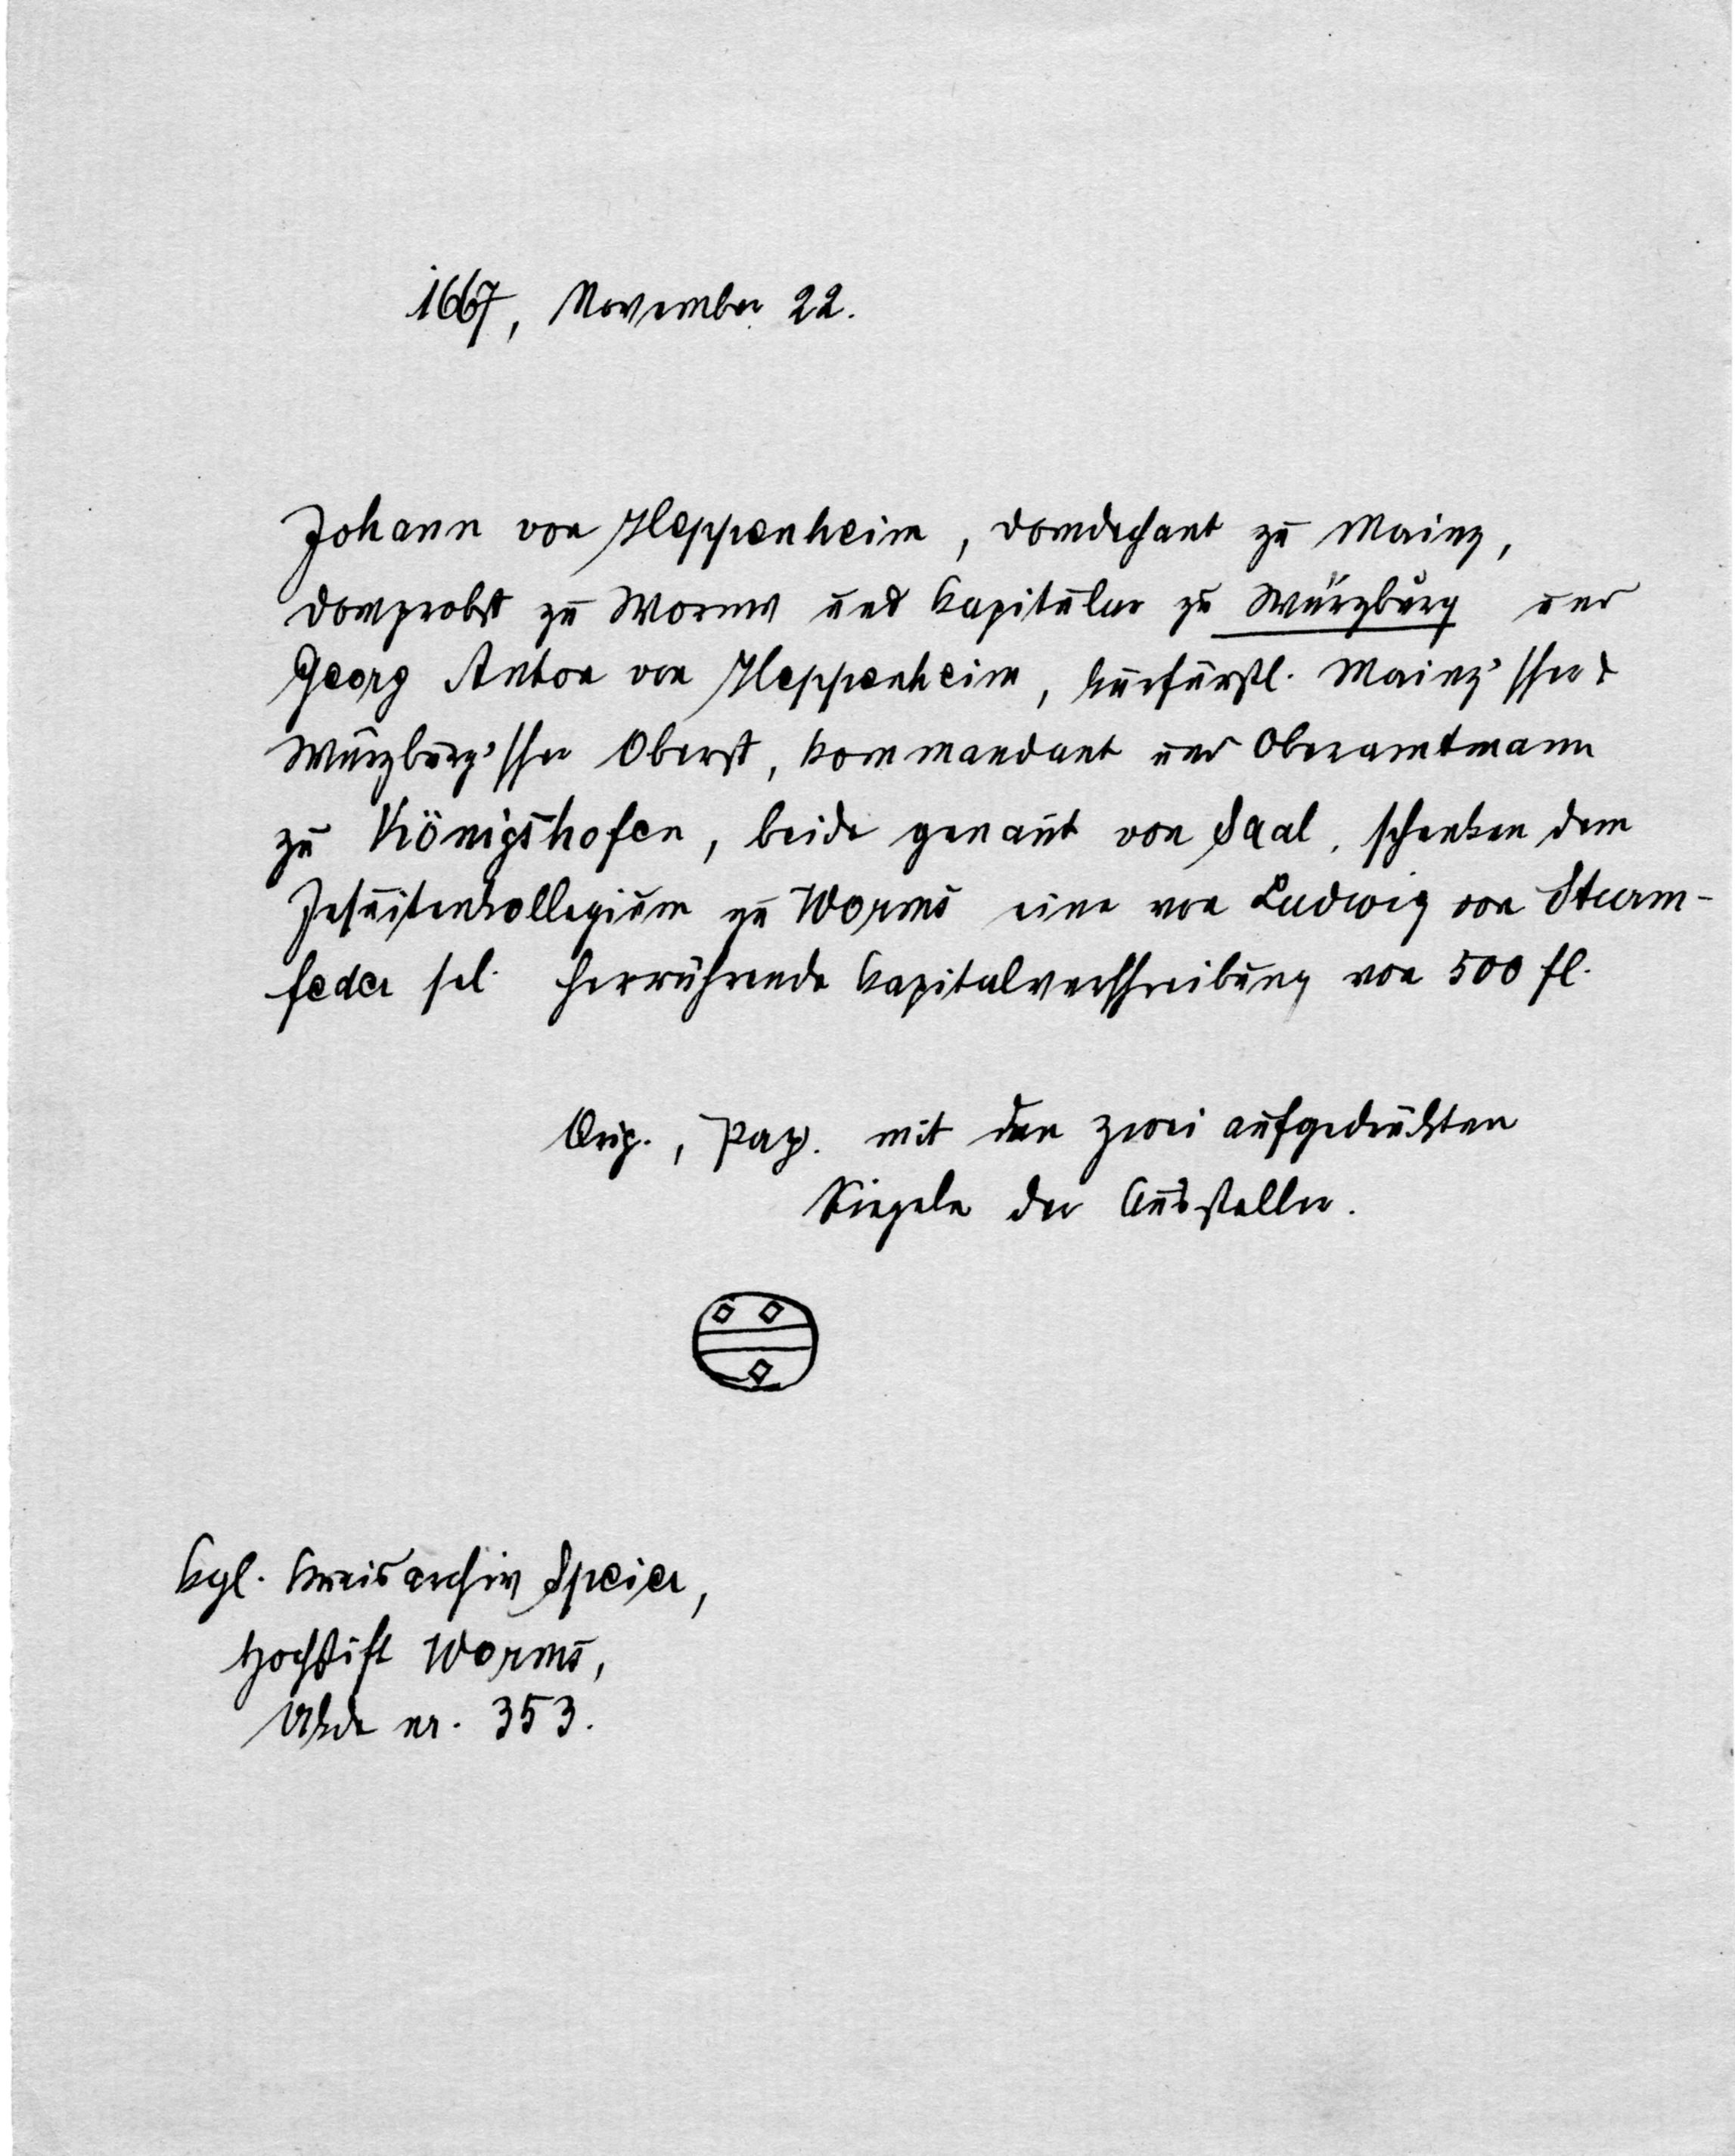 1667, November 22.
Johann von Heppenheim, Domdechant zu Mainz,
Domprobst zu Worms und Kapitular zu Würzburg und
Georg Anton von Heppenheim, kurfürstl. Mainz'scher &
Würzburg'scher Oberst, Kommandant und Oberamtmann
zu Königshofen, beide genannt von Saal, schenken dem
Jesuitenkollegium zu Worms eine von Ludwig von Sturm-
feder sel. herrührende Kapitalverschreibung von 500 fl.
Orig., Pap. mit den zwei aufgedrückten
Siegeln der Aussteller.
Kgl. Kreisarchiv Speier,
Hochstift Worms,
Urkde nr. 353.